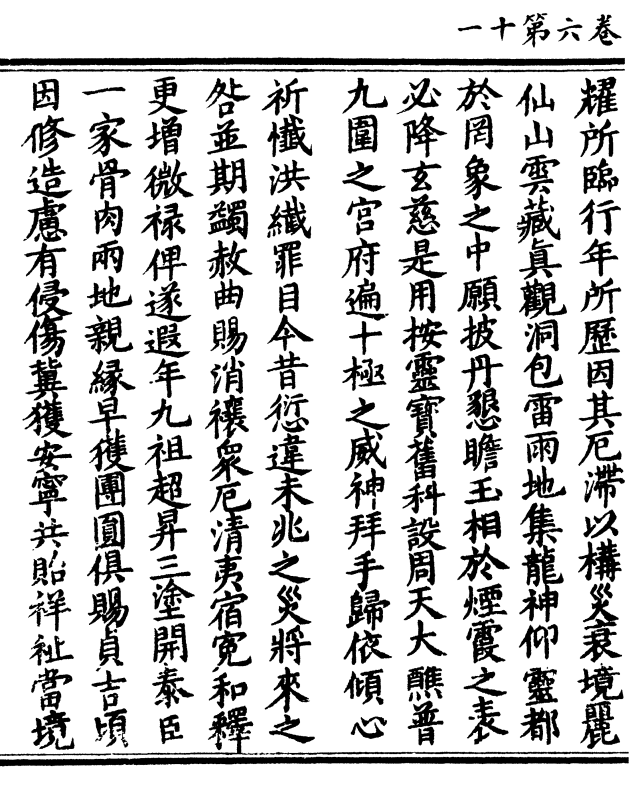 卷六第十一
耀所臨行年所歷因其厄滯以構災衰境麗
仙山雲藏真觀洞包雷雨地集龍神仰靈都
於罔象之中願披丹懇瞻玉相於煙霞之表
必降玄慈是用按靈寶舊科設周天大醮普
九圍之宮府遍十極之威神拜手歸依傾心
祈懺洪纖罪目今昔愆違未兆之災將來之
咎並期蠲赦曲賜消禳衆厄清夷宿冤和釋
更增微祿俾遂遐年九祖超昇三塗開泰臣
一家骨肉兩地親緣早獲團圓俱賜貞吉頃
因修造慮有侵傷冀獲安寧共貽祥祉當境